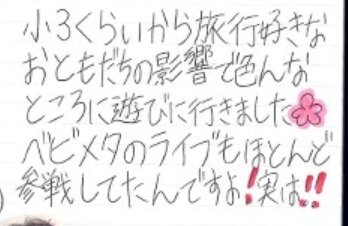 小3くらいから旅行好きな
おともだちの影響で色んな
ところに遊びに行きました
ベビメタのライブもほとんど
参戦してたんですよ!実は!!